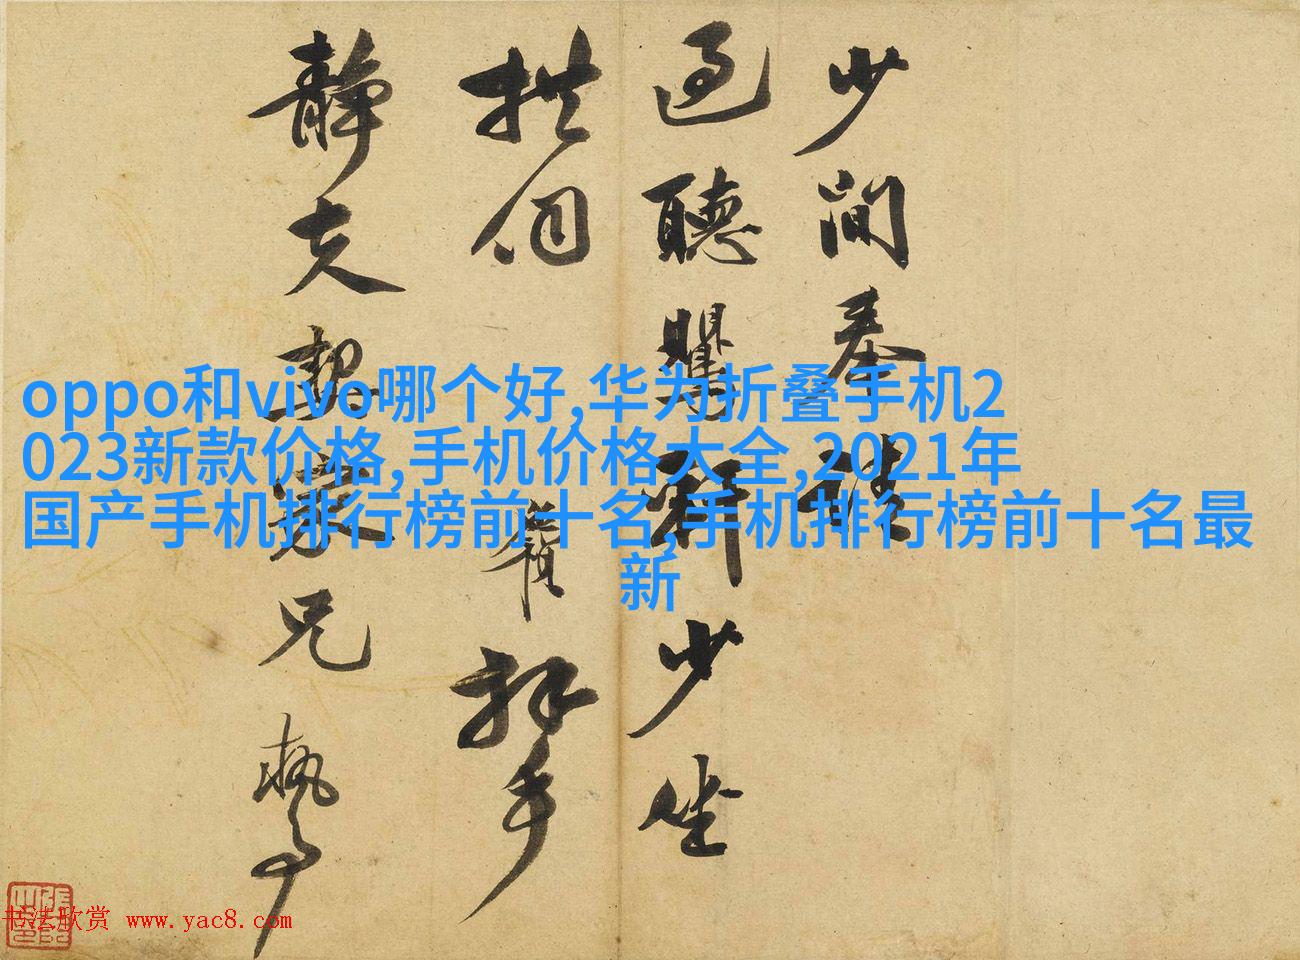 少間奉
過聽少坐
拱伺
拜手
靜夫契家兄執事
oppo和vivo哪个好,华为折叠手机2
023新款价格,手机价格大全,2021年
国产手机排行榜前十名,手机排行榜前十名最
新
书法欣赏 www.yac8.com